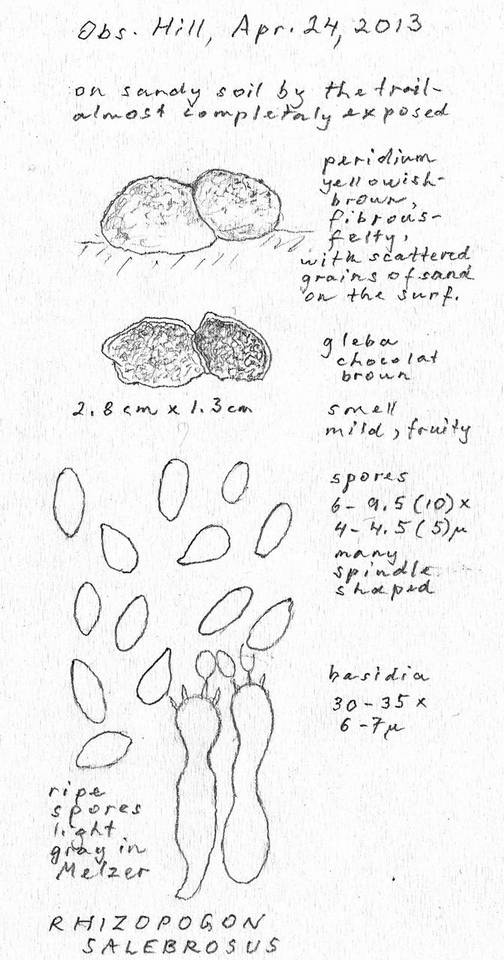 Obs. Hill, Apr. 24, 2013
on sandy soil by the trail-
almost completaly exposed
peridium
yellowish-
brown,
fibrous-
felty,
with scattered
grains of sand
on the surf.
gleba
chocolat
brown
2.8 cm x 1.3 cm
smell
mild, fruity
spores
6-9.5(10)x
4-4.5(5)µ
many
spindle
shaped
basidia
30-35 x
6-7µ
ripe
spores
light
gray in
Melzer
RHIZOPOGON
SALEBROSUS